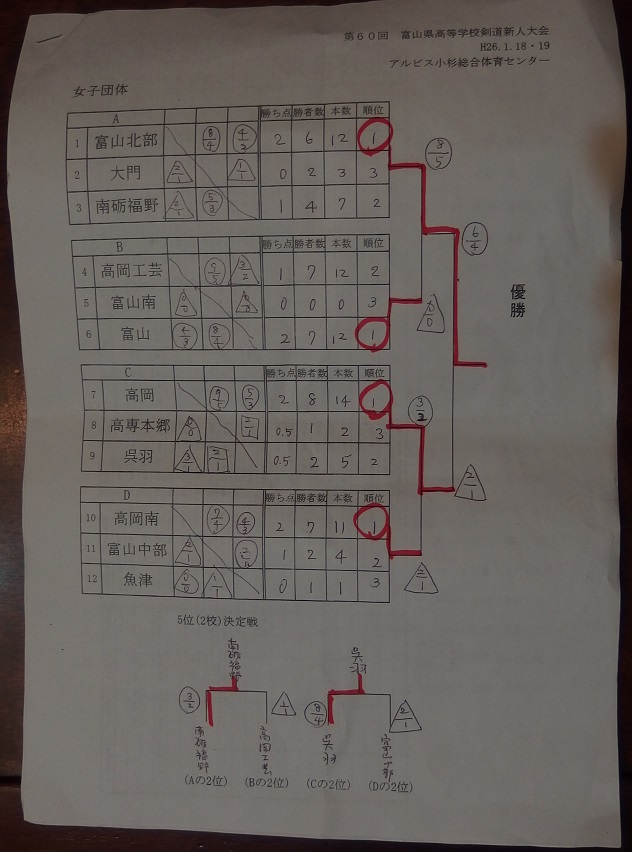 第60回 富山県高等学校剣道新人大会
H26.1.18・19
アルビス小杉総合体育センター
女子団体
A 勝ち点 勝者数 本数 順位
1 富山北部 8/4 4/3 2 6 12 1
2 大門 2/1 1/1 0 2 3 3
3 南砺福野 2/1 5/3 1 4 7 2
8/5
6/4
B 勝ち点 勝者数 本数 順位
4 高岡工芸 5/5 3/2 1 7 12 2
5 富山南 0/0 0/0 0 0 0 3
6 富山 4/3 8/4 2 7 12 1
0/0
優勝
C 勝ち点 勝者数 本数 順位
7 高岡 9/5 5/3 2 8 14 1
8 高専本郷 0/0 2/1 0.5 1 2 3
9 呉羽 3/1 2/1 0.5 2 5 2
3/2
2/1
D 勝ち点 勝者数 本数 順位
10 高岡南 7/4 4/3 2 7 11 1
11 富山中部 2/1 1 2 4 2
12 魚津 0/0 1/1 0 1 1 3
2/1
5位(2校)決定戦
南砺福野 呉羽
3/2 1/1 8/4 2/1
南砺福野 高岡工芸 呉羽 富山中部
(Aの2位) (Bの2位) (Cの2位) (Dの2位)